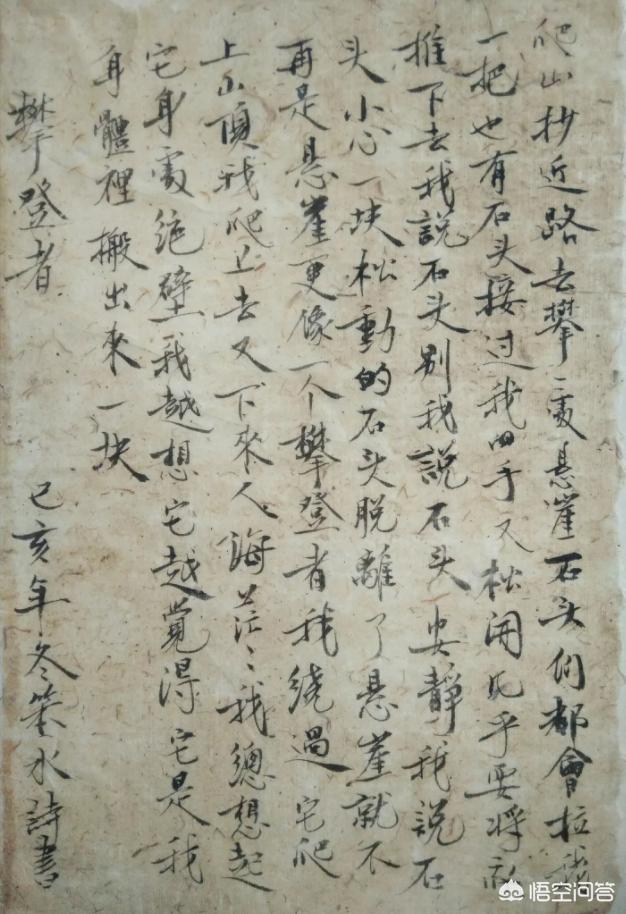 爬山抄近路去攀一處悬崖石头们都會拉我
一把也有石头接过我的手又松開几乎要将我
推下去我説石头别我説石头安静我説石
头小心一块松動的石头脱離了悬崖就不
再是悬崖更像一个攀登者我繞過它爬
上山頂我爬上去又下來人海茫々我總想起
它身處绝壁我越想它越覺得它是我
身體裡搬出來一块
攀登者
己亥年冬笨水詩書
悟空问答